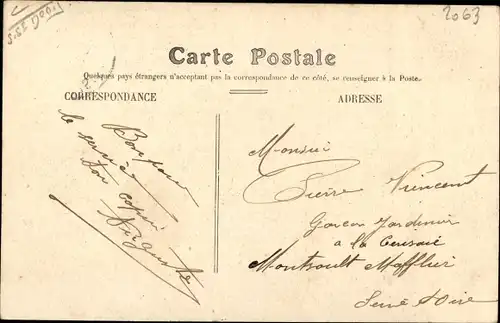 2063
Carte Postale
Quelques pays étrangers n'acceptant pas la correspondance de ce côté, se renseigner à la Poste.
CORRESPONDANCE
ADRESSE
Bonjour
le
ton copain
Auguste
Monsieur
Pierre Vincent
Garcon Jardinier
a la
Montsoult Maffliers
Seine et Oise